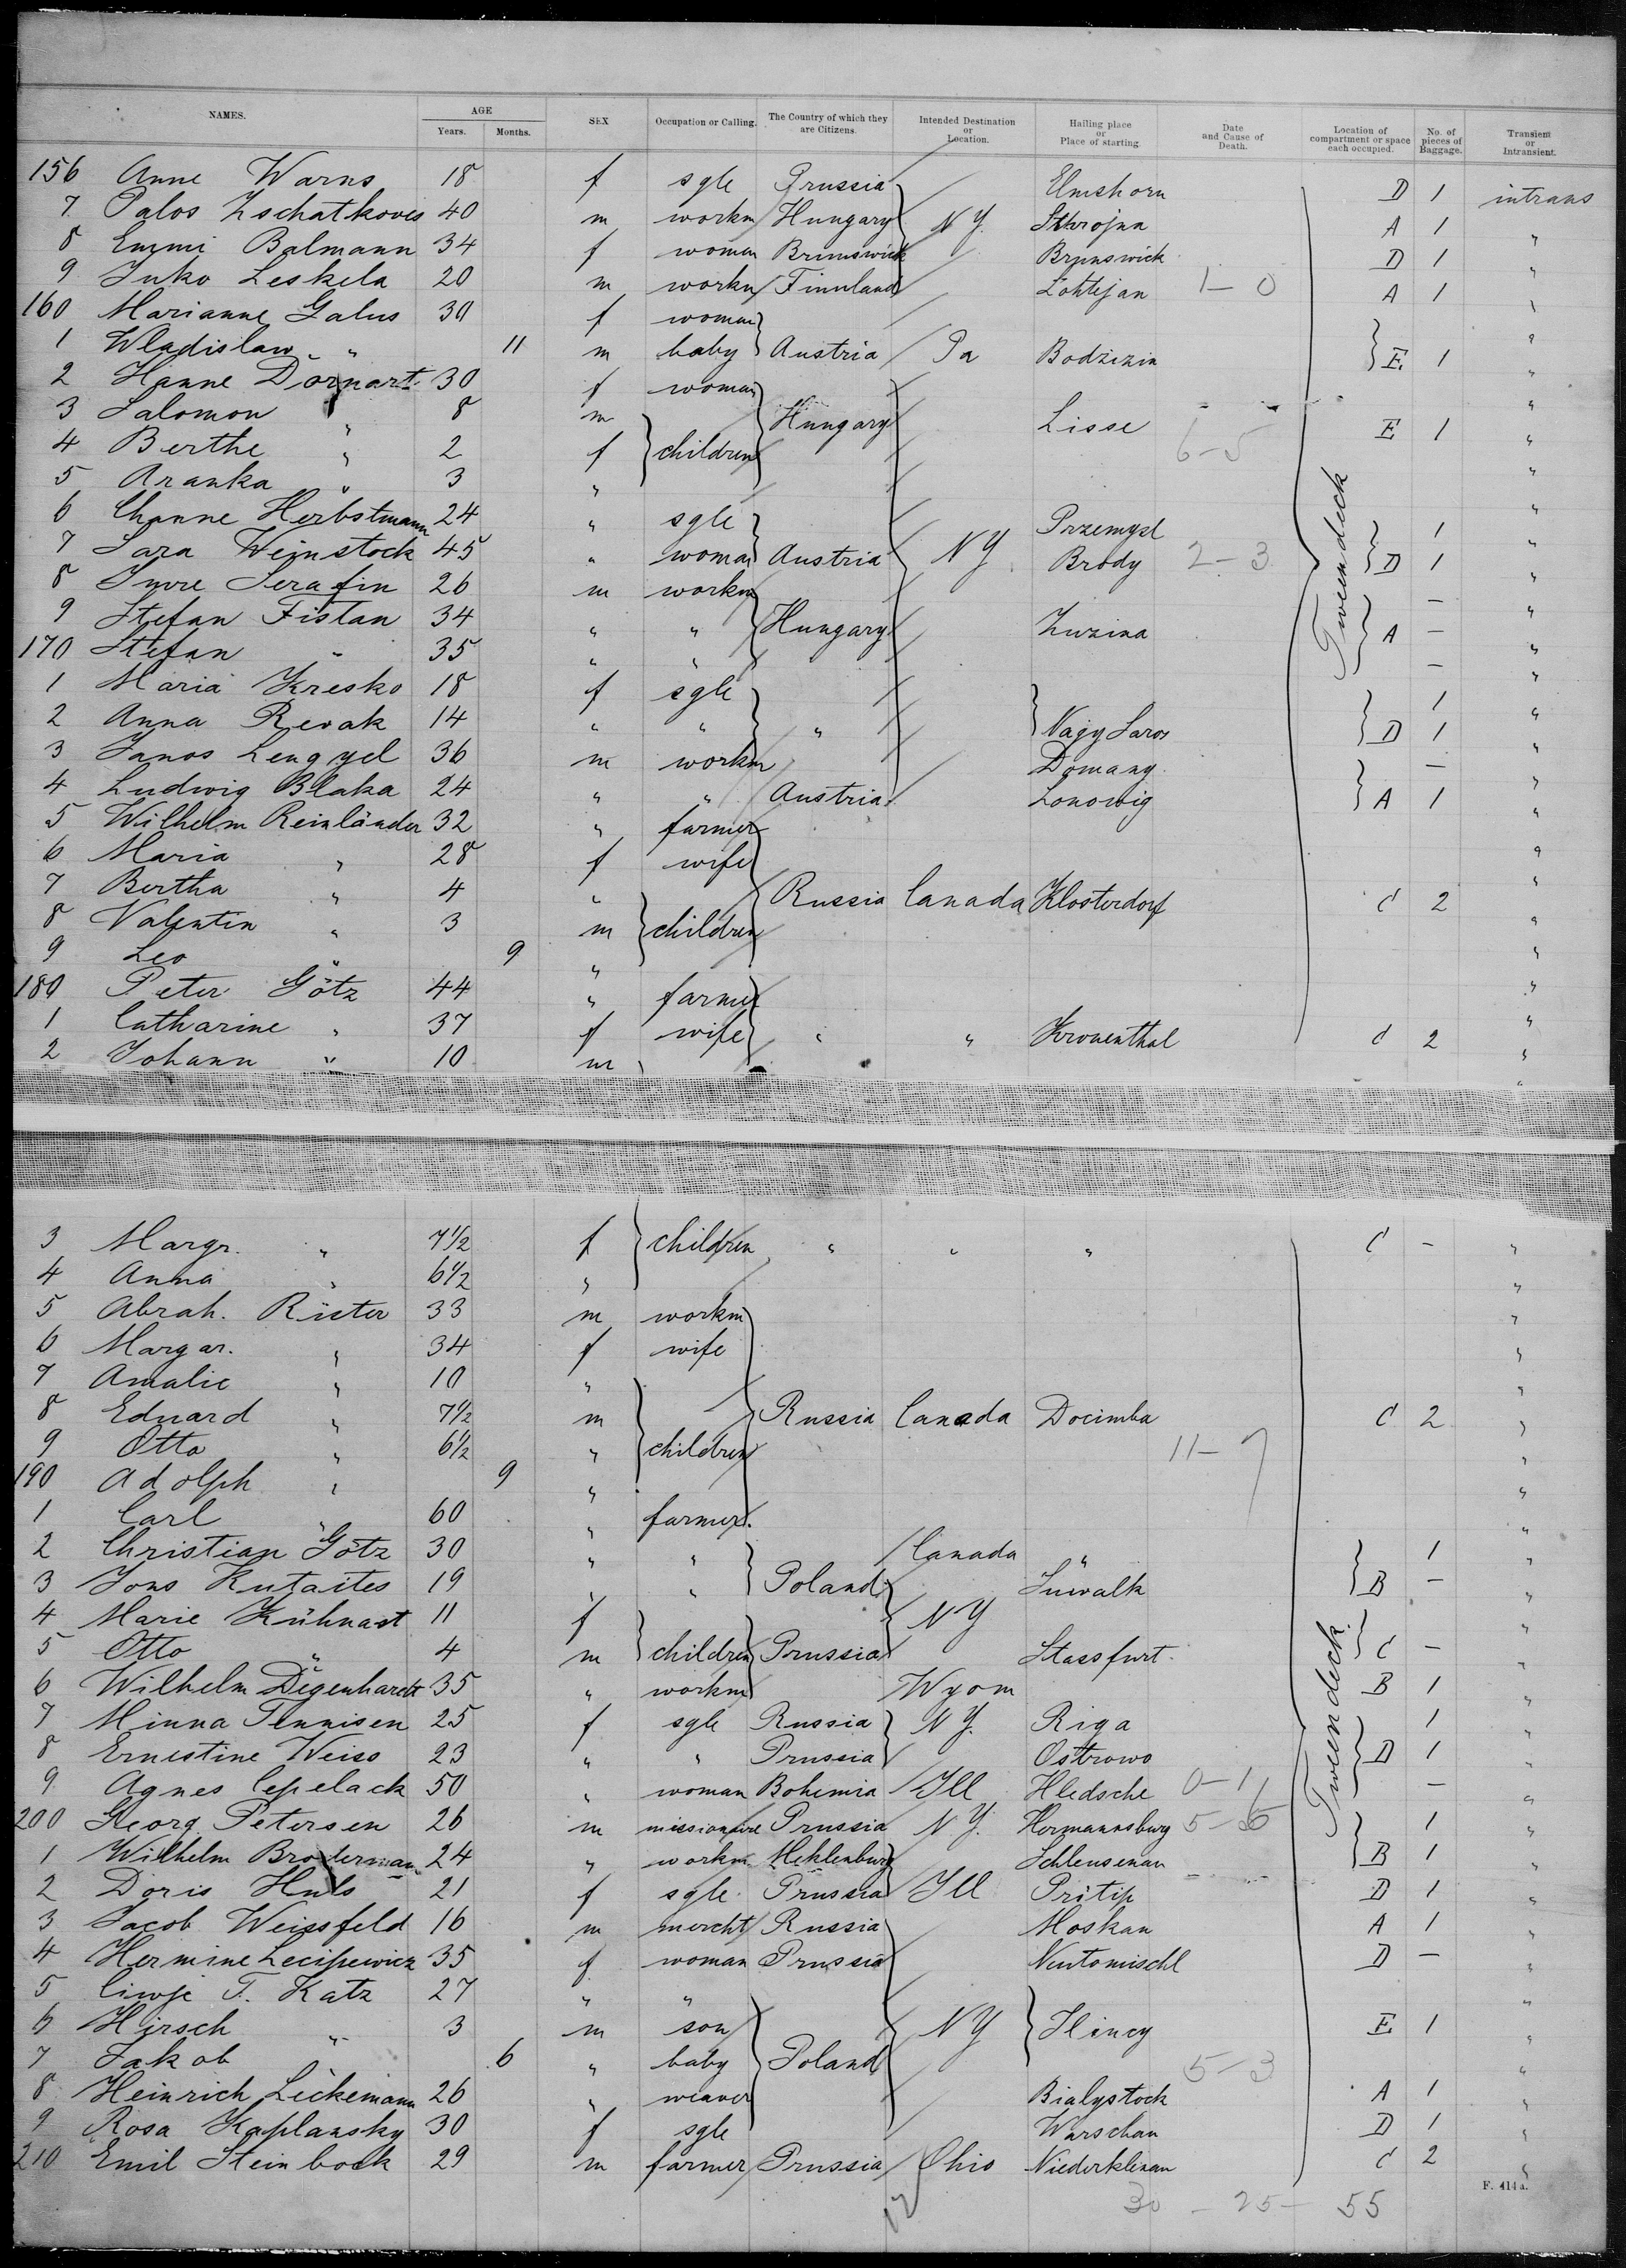 NAMES. AGE Years. Months. SEX Occupation or Calling. The Country of which they are Citizens. Intended Destination or Location. Hailing place or Place of starting. Date and Cause of Death. Location of compartment or space each occupied. No. of pieces of Baggage. Transient or Intransient.
156 Anne Warns 18 f sgle Prussia Elmshorn D 1 intrans
7 Palos Zschatkovis 40 m workm Hungary N Y. A 1 "
8 Emmi Balmann 34 f woman Brunswick Brunswick D 1 "
9 Juko Leskela 20 m workm Finnland Lohtejan 1-0 A 1 "
160 Marianne Galus 30 f woman "
1 Wladislaw " 11 m baby Austria Pa Bodzizin E 1 "
2 Hanne Dornart 30 f woman "
3 Salomon " 8 m Hungary Lisse E 1 "
4 Berthe " 2 f children 6-5 "
5 Aranka " 3 " "
6 Channe Herbstmann 24 " sgle Przemysl 1 "
7 Sara Weinstock 45 " woman Austria N Y. Brody 2-3 D 1 "
8 Imre Serafin 26 m workm - "
9 Stefan Fistan 34 " " Hungary Zuzina A - "
170 Stefan " 35 " " - "
1 Maria Kresko 18 f sgle 1 "
2 Anna Revak 14 " " " Nagy Saros D 1 "
3 Janos Lengyel 36 m workm Domany - "
4 Ludwig Blaka 24 " " Austria Lonowig A 1 "
5 Wilhelm Reinländer 32 " farmer "
6 Maria " 28 f wife "
7 Bertha " 4 " Russia Canada Klosterdorf C 2 "
8 Valentin " 3 m children "
9 Leo " 9 " "
180 Peter Götz 44 " farmer "
1 Catharine " 37 f wife " " Kronenthal C 2 "
2 Johann " 10 m "
Tweendeck
3 Margr. " 7 1/2 f children " " " C - "
4 Anna " 6 1/2 " "
5 Abrah. Rister 33 m workm "
6 Margar. " 34 f wife "
7 Amalie " 10 " "
8 Eduard " 7 1/2 m Russia Canada Docimba C 2 "
9 Otto " 6 1/2 " children 11-7 "
190 Adolph " 9 " "
1 Carl " 60 " farmer. "
2 Christian Götz 30 " " Canada " 1 "
3 Jons Rutaites 19 " " Poland Suwalk B - "
4 Marie Kühnast 11 f N Y "
5 Otto " 4 m children Prussia Stassfurt C - "
6 Wilhelm Degenhardt 35 " workm Wyom B 1 "
7 Minna Tennisen 25 f sgle Russia N Y. Riga 1 "
8 Ernestine Weiss 23 " " Prussia Ostrowo D 1 "
9 Agnes Cepelack 50 " woman Bohemia Ill Hledsche 0-1 - "
200 Georg Petersen 26 m missionaire Prussia N Y. Hermannsburg 5-6 1 "
1 Wilhelm Broderman 24 " workm Meklenburg Schleusenau B 1 "
2 Doris Huls 21 f sgle Prussia Ill Pritip D 1 "
3 Jacob Weissfeld 16 m mercht Russia Moskau A 1 "
4 Hermine Lecipewicz 35 f woman Prussia Neutomischl D - "
5 Ciwje T. Katz 27 " " "
6 Hirsch " 3 m son N Y Ilincy E 1 "
7 Jakob " 6 " baby Poland 5-3 "
8 Heinrich Lickemann 26 " weaver Bialystock A 1 "
9 Rosa Kaplansky 30 f sgle Warschau D 1 "
210 Emil Steinbock 29 m farmer Prussia Ohio Niederklenau C 2 "
Tweendeck
F. 414 a.
30 - 25 - 55